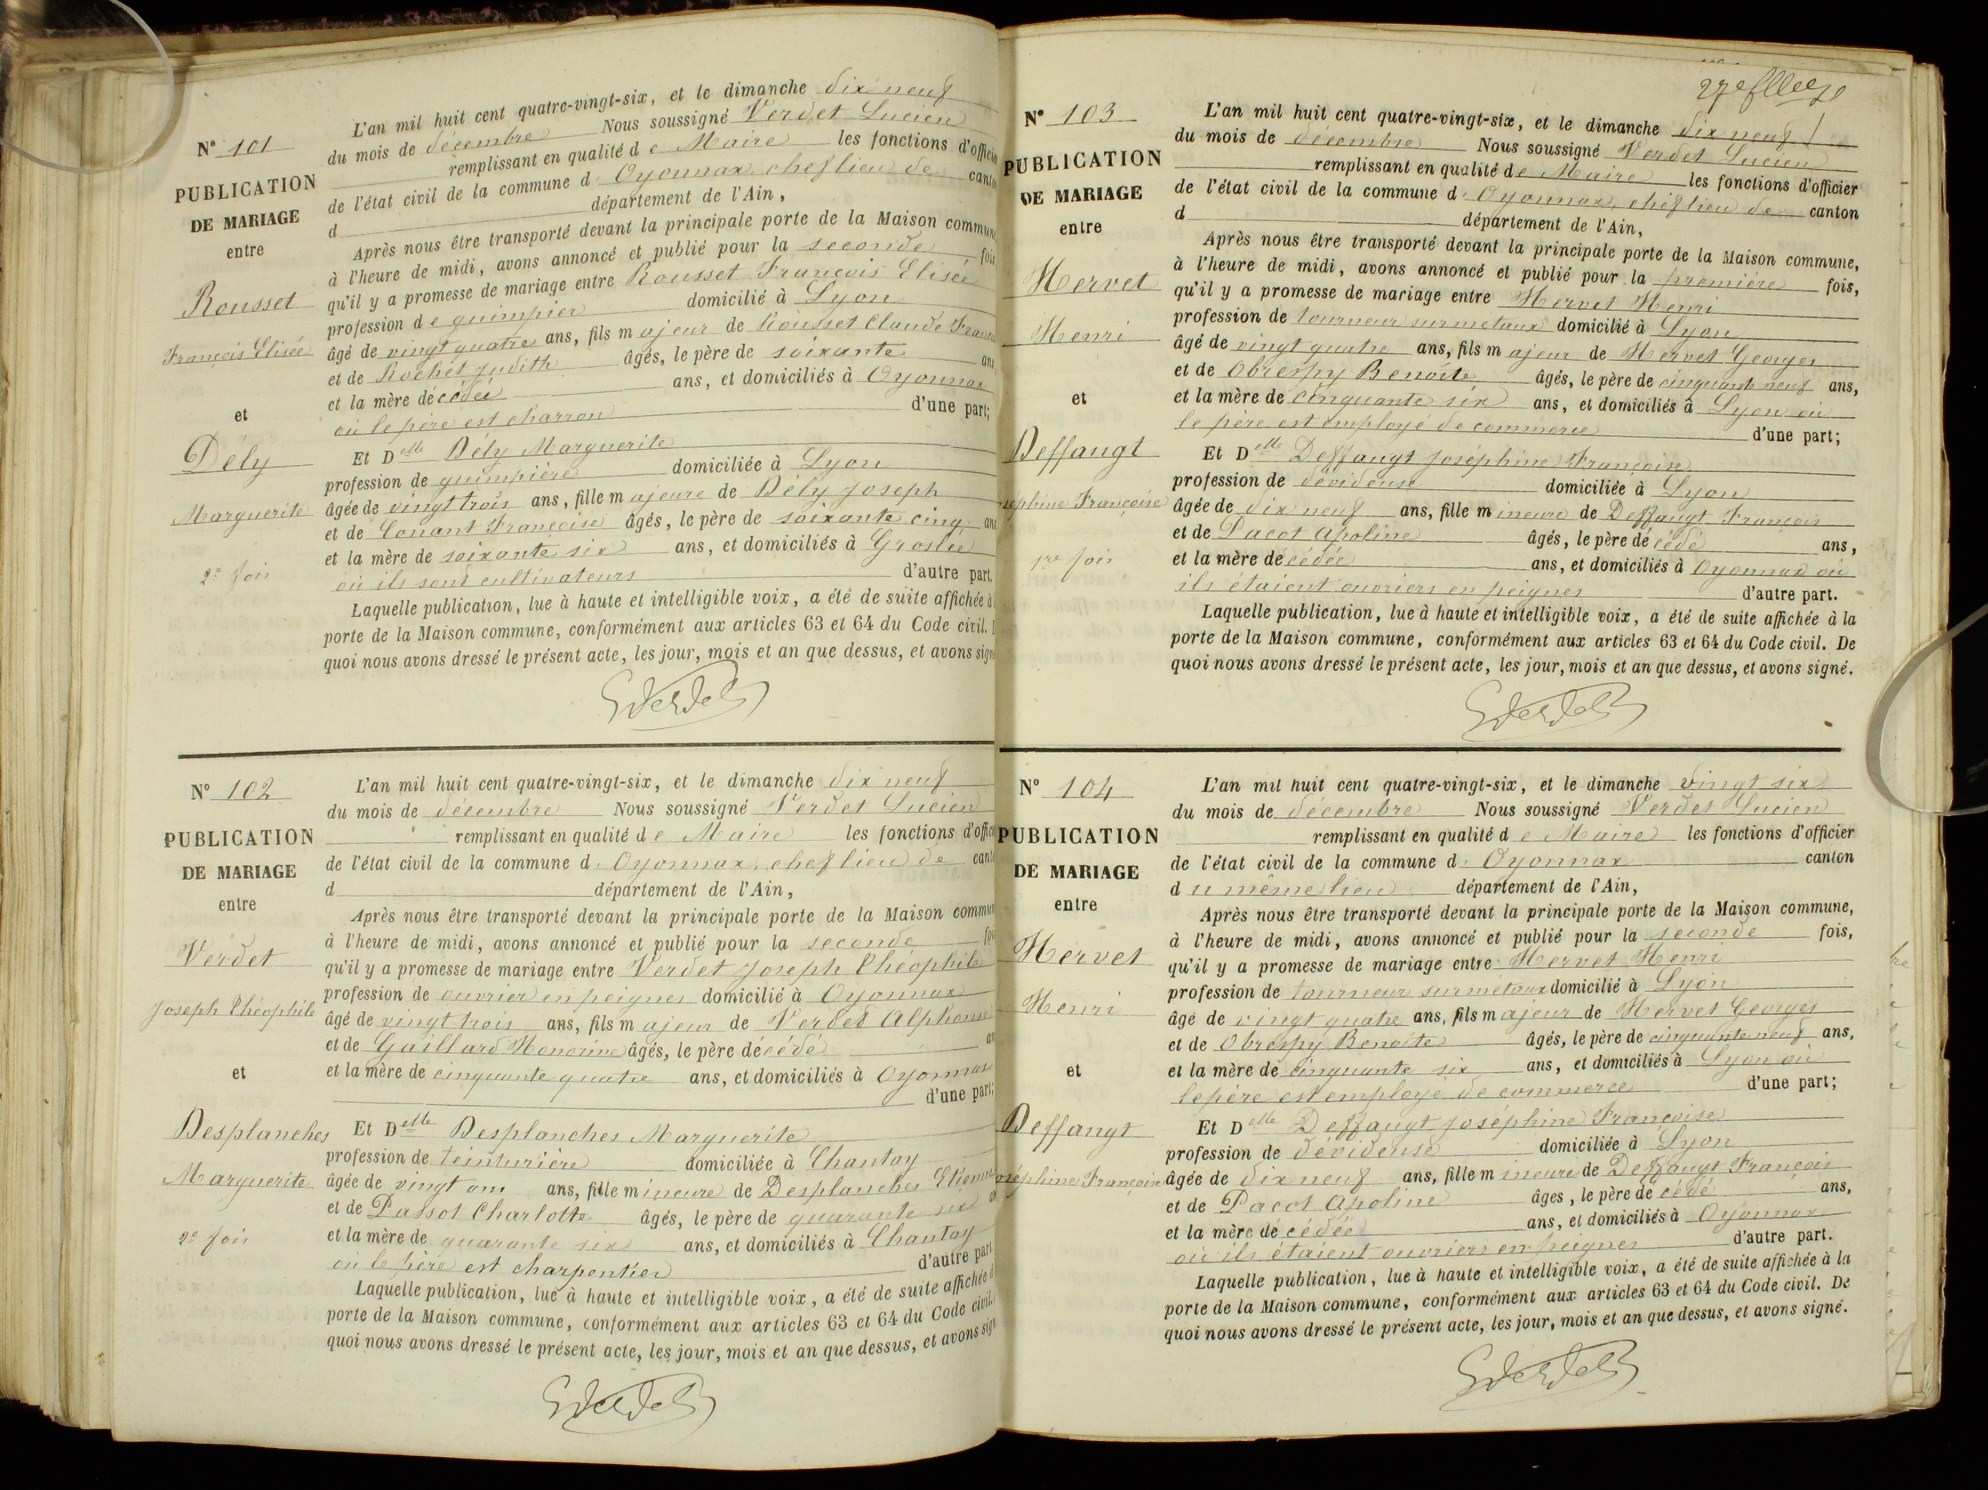 N° 101
PUBLICATION
DE MARIAGE
entre
Rousset
François Elisée
et
Dély
Marguerite
2e fois
L'an mil huit cent quatre-vingt-six, et le dimanche dix neuf
du mois de décembre Nous soussigné Verdet Lucien
remplissant en qualité de Maire les fonctions d'officier
de l'état civil de la commune d'Oyonnax, chef lieu de canton
d département de l'Ain,
Après nous être transporté devant la principale porte de la Maison commune
à l'heure de midi, avons annoncé et publié pour la seconde fois
qu'il y a promesse de mariage entre Rousset François Elisée
profession de guimpier domicilié à Lyon
âgé de vingt quatre ans, fils majeur de Rousset Claude
et de Rochet Judith âgés, le père de soixante ans
et la mère décédée ans, et domiciliés à Oyonnax
où le père est charron d'une part;
Et Delle Dély Marguerite
profession de guimpière domiciliée à Lyon
âgée de vingt trois ans, fille majeure de Dély Joseph
et de Conant Françoise âgés, le père de soixante cinq ans
et la mère de soixante six ans, et domiciliés à Groslée
où ils sont cultivateurs d'autre part.
Laquelle publication, lue à haute et intelligible voix, a été de suite affichée à
porte de la Maison commune, conformément aux articles 63 et 64 du Code civil.
quoi nous avons dressé le présent acte, les jour, mois et an que dessus, et avons signé
N° 102
PUBLICATION
DE MARIAGE
entre
Verdet
Joseph Théophile
et
Desplanches
Marguerite
2e fois
L'an mil huit cent quatre-vingt-six, et le dimanche dix neuf
du mois de décembre Nous soussigné Verdet Lucien
remplissant en qualité de Maire les fonctions d'officier
de l'état civil de la commune d'Oyonnax, chef lieu de canton
d département de l'Ain,
Après nous être transporté devant la principale porte de la Maison commune
à l'heure de midi, avons annoncé et publié pour la seconde fois
qu'il y a promesse de mariage entre Verdet Joseph Théophile
profession de ouvrier en peignes domicilié à Oyonnax
âgé de vingt trois ans, fils majeur de Verdet Alphonse
et de Gaillard Honorine âgés, le père décédé ans
et la mère de cinquante quatre ans, et domiciliés à Oyonnax
d'une part;
Et Delle Desplanches Marguerite
profession de teinturière domiciliée à Chantay
âgée de vingt ans, fille mineure de Desplanches Etienne
et de Passot Charlotte âgés, le père de quarante six
et la mère de quarante six ans, et domiciliés à Chantay
où le père est charpentier d'autre part
Laquelle publication, lue à haute et intelligible voix, a été de suite affichée à
porte de la Maison commune, conformément aux articles 63 et 64 du Code civil.
quoi nous avons dressé le présent acte, les jour, mois et an que dessus, et avons signé
N° 103
PUBLICATION
DE MARIAGE
entre
Hervet
Henri
et
Deffaugt
Joséphine Françoise
1re fois
L'an mil huit cent quatre-vingt-six, et le dimanche dix neuf
du mois de décembre Nous soussigné Verdet Lucien
remplissant en qualité de Maire les fonctions d'officier
de l'état civil de la commune d'Oyonnax, chef lieu de canton
d département de l'Ain,
Après nous être transporté devant la principale porte de la Maison commune,
à l'heure de midi, avons annoncé et publié pour la première fois,
qu'il y a promesse de mariage entre Hervet Henri
profession de tourneur sur métaux domicilié à Lyon
âgé de vingt quatre ans, fils majeur de Hervet Georges
et de Obrespy Benoite âgés, le père de cinquante neuf ans,
et la mère de cinquante six ans, et domiciliés à Lyon où
le père est employé de commerce d'une part;
Et Delle Deffaugt Joséphine Françoise
profession de dévideuse domiciliée à Lyon
âgée de dix neuf ans, fille mineure de Deffaugt François
et de Pacot Apoline âgés, le père décédé ans,
et la mère décédée ans, et domiciliés à Oyonnax où
ils étaient ouvriers en peignes d'autre part.
Laquelle publication, lue à haute et intelligible voix, a été de suite affichée à la
porte de la Maison commune, conformément aux articles 63 et 64 du Code civil. De
quoi nous avons dressé le présent acte, les jour, mois et an que dessus, et avons signé.
N° 104
PUBLICATION
DE MARIAGE
entre
Hervet
Henri
et
Deffaugt
Joséphine Françoise
L'an mil huit cent quatre-vingt-six, et le dimanche vingt six
du mois de décembre Nous soussigné Verdet Lucien
remplissant en qualité de Maire les fonctions d'officier
de l'état civil de la commune d'Oyonnax canton
du même lieu département de l'Ain,
Après nous être transporté devant la principale porte de la Maison commune,
à l'heure de midi, avons annoncé et publié pour la seconde fois,
qu'il y a promesse de mariage entre Hervet Henri
profession de tourneur sur métaux domicilié à Lyon
âgé de vingt quatre ans, fils majeur de Hervet Georges
et de Obrespy Benoite âgés, le père de cinquante neuf ans,
et la mère de cinquante six ans, et domiciliés à Lyon où
le père est employé de commerce d'une part;
Et Delle Deffaugt Joséphine Françoise
profession de dévideuse domiciliée à Lyon
âgée de dix neuf ans, fille mineure de Deffaugt François
et de Pacot Apoline âgés, le père décédé ans,
et la mère décédée ans, et domiciliés à Oyonnax
où ils étaient ouvriers en peignes d'autre part.
Laquelle publication, lue à haute et intelligible voix, a été de suite affichée à la
porte de la Maison commune, conformément aux articles 63 et 64 du Code civil. De
quoi nous avons dressé le présent acte, les jour, mois et an que dessus, et avons signé.